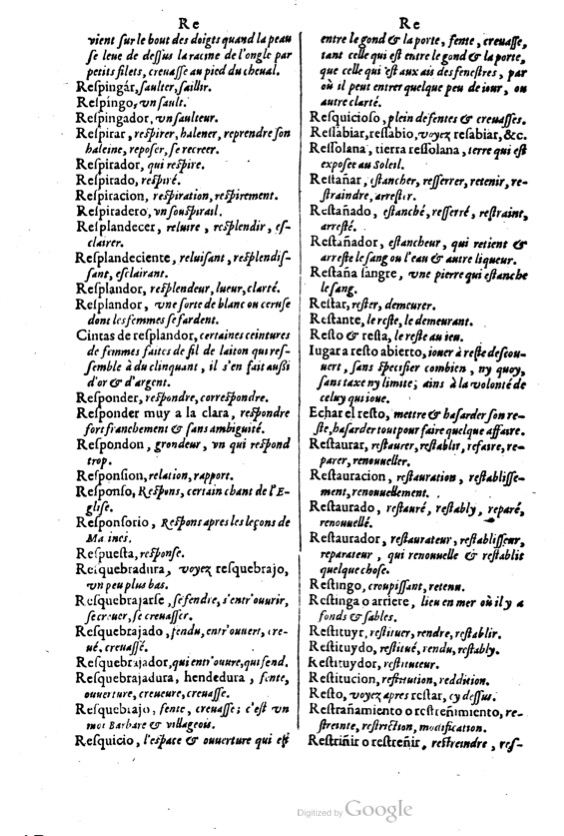 Re
vient ſur le bout des doigts quand la peau
ſe leue de deſſus la racine de l'ongle par
petits filets, creuaſſe au pied du cheual.
Reſpingár, ſaulter, ſaillir.
Reſpíngo, vn ſault.
Reſpingador, vn ſaulteur.
Reſpirar, reſpirer, halener, reprendre ſon
haleine, repoſer, ſe recreer.
Reſpirador, qui reſpire.
Reſpirado, reſpiré.
Reſpiracion, reſpiration, reſpirement.
Reſpiradero, vn ſouſpirail.
Reſplandecer, reluire, reſplendir, eſ-
clairer.
Reſplandeciente, reluiſant, reſplendiſ-
ſant, eſclairant.
Reſplandor, reſplendeur, lueur, clarté.
Reſplandor, vne ſorte de blanc ou ceruſe
dont les femmes ſe fardent.
Cintas de reſplandor, certaines ceintures
de femmes faites de fil de laiton qui reſ-
ſemble à du clinquant, il s'en fait auſſi
d'or & d'argent.
Reſponder, reſpondre, correſpondre.
Reſponder muy a la clara, reſpondre
fort franchement & ſans ambiguité.
Reſpondon, grondeur, vn qui reſpond
trop.
Reſponſion, relation, rapport.
Reſponſo, Reſpons, certain chant de l'E-
gliſe.
Reſponſorio, Reſpons apres les leçons de
Matines.
Reſpueſta, reſponſe.
Reſquebradura, voyez reſquebrajo,
vn peu plus bas.
Reſquebrajarſe, ſe fendre, s'entr'ouurir,
ſe creuer, ſe creuaſſer.
Reſquebrajado, fendu, entr'ouuert, cre-
ué, creuaſſé.
Reſquebrajador, qui entr'ouure, qui fend.
Reſquebrajadura, hendedura, fente,
ouuerture, creueure, creuaſſe.
Reſquebrajo, fente, creuaſſe; c'eſt vn
mot Barbare & villageois.
Reſquicio, l'eſpace & ouuerture qui eſt
Re
entre le gond & la porte, fente, creuaſſe,
tant celle qui eſt entre le gond & la porte,
que celle qui eſt aux ais des feneſtres, par
où il peut entrer quelque peu de iour, ou
autre clarté.
Reſquicioſo, plein de fentes & creuaſſes.
Reſſabiar, reſſabio, voyez reſabiar, &c.
Reſſolana, tierra reſſolana, terre qui eſt
expoſee au Soleil.
Reſtañar, eſtancher, reſſerrer, retenir, re-
ſtraindre, arreſter.
Reſtañado, eſtanché, reſſerré, reſtraint,
arreſté.
Reſtañador, eſtancheur, qui retient &
arreſte le ſang ou l'eau & autre liqueur.
Reſtaña ſangre, vne pierre qui eſtanche
le ſang.
Reſtar, reſter, demeurer.
Reſtante, le reſte, le demeurant.
Reſto & reſta, le reſte au ieu.
Iugar a reſto abierto, iouer à reſte deſcou-
uert, ſans ſpecifier combien, ny quoy,
ſans taxe ny limite; ains à la volonté de
celuy qui ioue.
Echar el reſto, mettre & haſarder ſon re-
ſte, haſarder tout pour faire quelque affaire.
Reſtaurar, reſtaurer, reſtablir, refaire, re-
parer, renouueller.
Reſtauracion, reſtauration, reſtabliſſe-
ment, renouuellement.
Reſtaurado, reſtauré, reſtably, reparé,
renouuellé.
Reſtaurador, reſtaurateur, reſtabliſſeur,
reparateur, qui renouuelle & reſtablit
quelque choſe.
Reſtingo, croupiſſant, retenu.
Reſtinga o arriere, lieu en mer où il y a
fonds & ſables.
Reſtituyr, reſtituer, rendre, reſtablir.
Reſtituydo, reſtitué, rendu, reſtably.
Reſtituydor, reſtituteur.
Reſtitucion, reſtitution, reddition.
Reſto, voyez apres reſtar, cy deſſus.
Reſtrañamiento o reſtreñimiento, re-
ſtreinte, reſtriction, modification.
Reſtriñir o reſtreñir, reſtreindre, reſ-
Digitized by Google